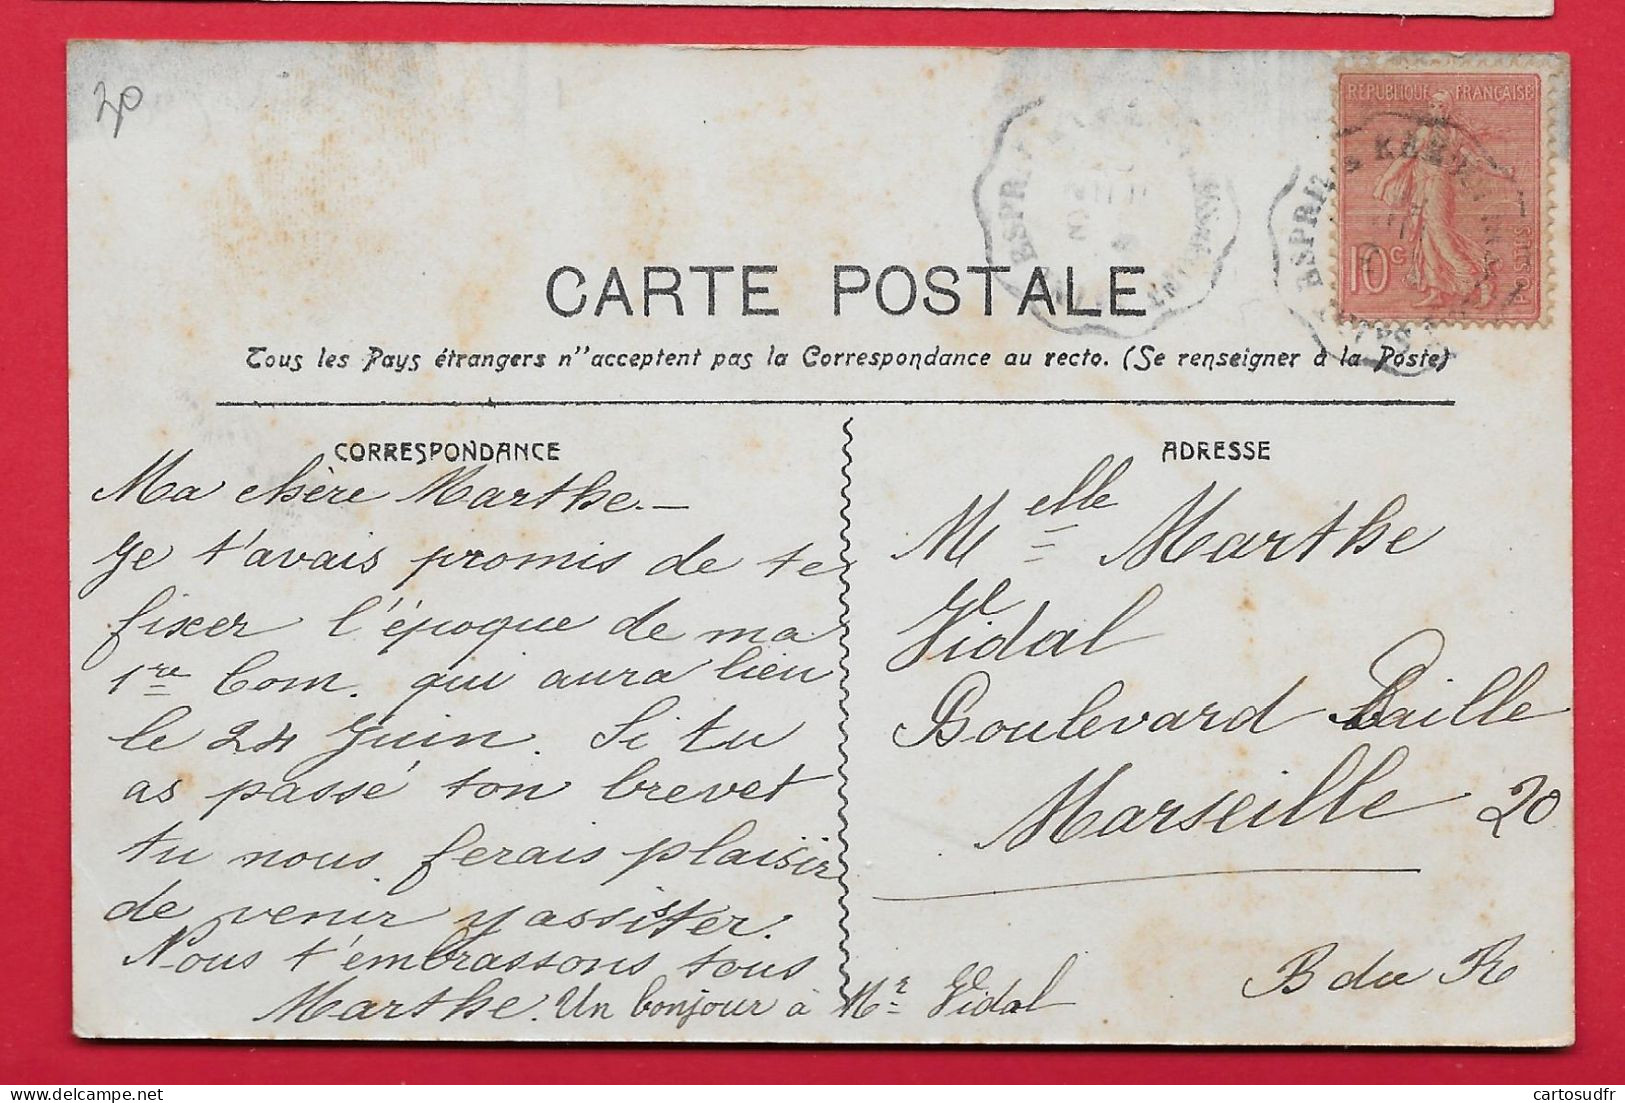 20
REPUBLIQUE FRANÇAISE
10c
POSTES
CARTE POSTALE
Tous les Pays étrangers n''acceptent pas la Correspondance au recto. (Se renseigner à la Poste)
CORRESPONDANCE
Ma chère Marthe.—
Je t'avais promis de te
fixer l'époque de ma
1re Com. qui aura lieu
le 24 Juin. Si tu
as passé ton brevet
tu nous ferais plaisir
de venir y assister.
Nous t'embrassons tous
Marthe. Un bonjour à Mr Vidal
ADRESSE
Melle Marthe
Vidal
Boulevard Baille
Marseille 20
B du R
cartosudfr